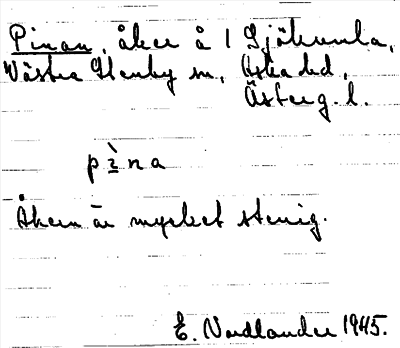 Pinan, åker å 1 Sjökumla,
Västra Stenby sn, Aska hd,
Österg. l.
pìna
Åkern är mycket stenig.
E. Nordlander 1945.